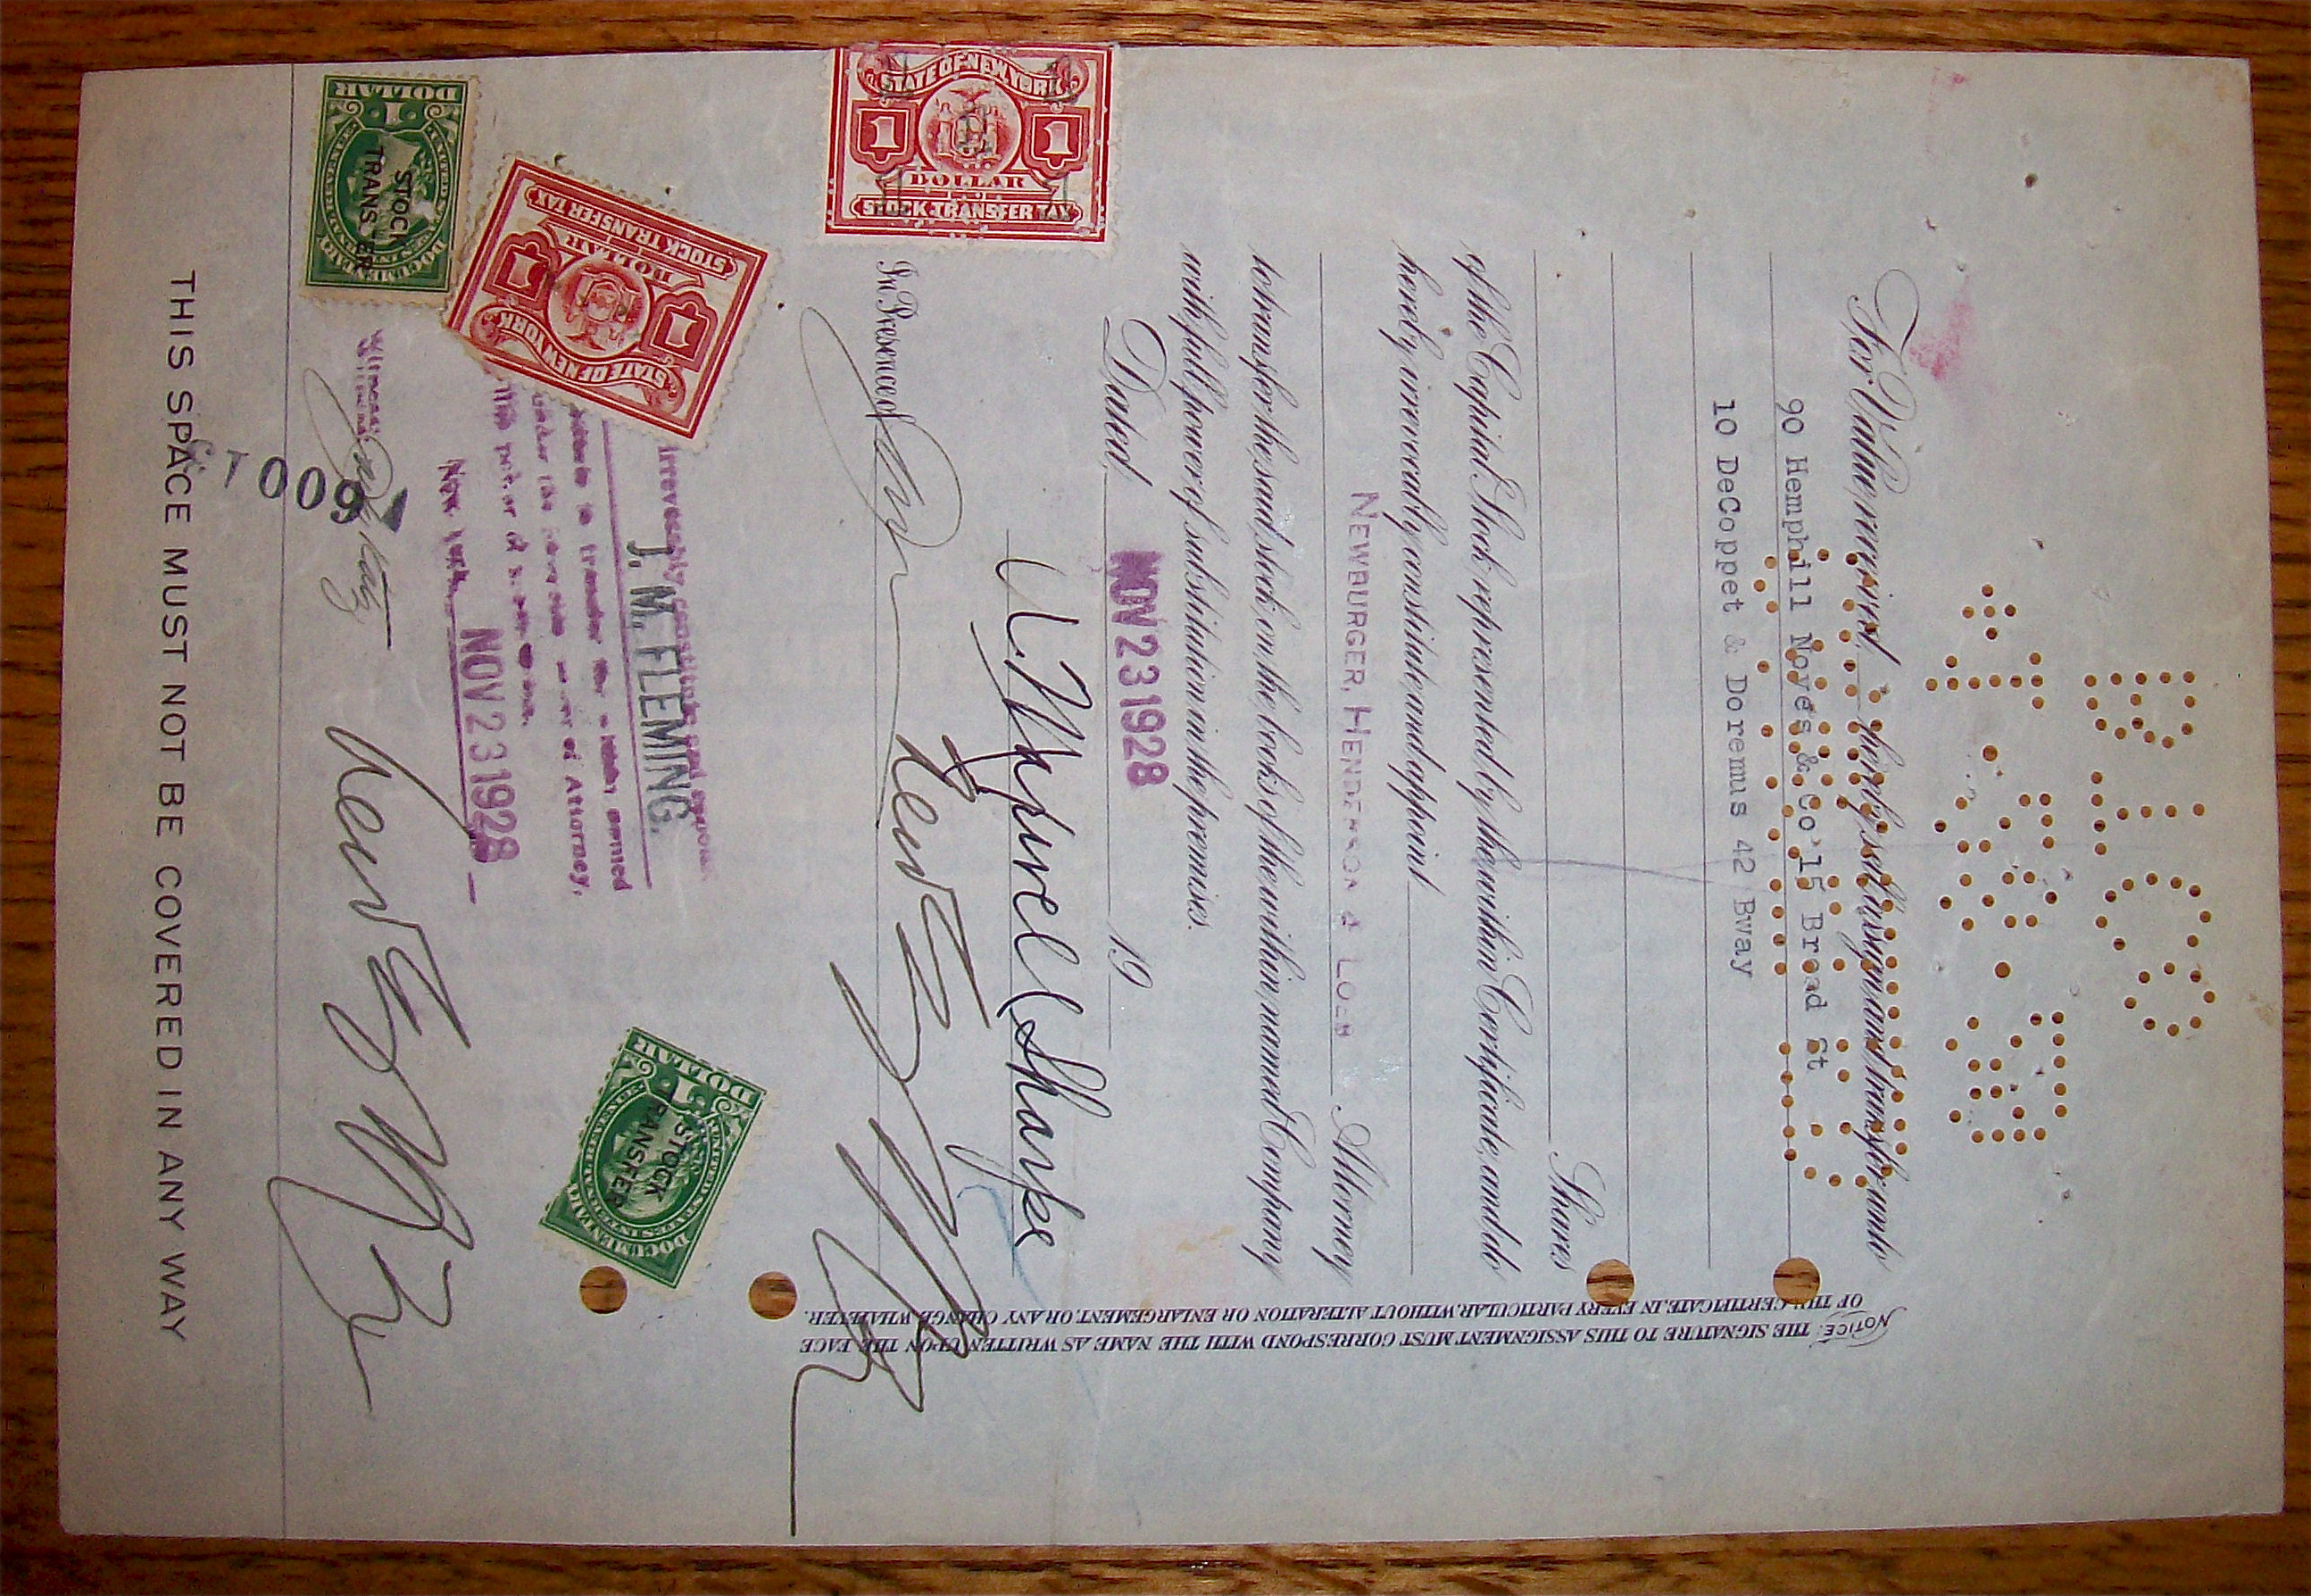 For Value received, hereby sell, assign and transfer unto
90 Hemphill Noyes & Co 15 Broad St
10 DeCoppet & Doremus 42 Bway
Shares
of the Capital Stock represented by the within Certificate, and do
hereby irrevocably constitute and appoint
NEWBURGER, HENDERSON & LOEB Attorney
to transfer the said stock on the books of the within named Company
with full power of substitution in the premises.
Dated NOV 23 1928 19
Sharpe
In Presence of
NOTICE: THE SIGNATURE TO THIS ASSIGNMENT MUST CORRESPOND WITH THE NAME AS WRITTEN UPON THE FACE
OF THE CERTIFICATE, IN EVERY PARTICULAR, WITHOUT ALTERATION OR ENLARGEMENT, OR ANY CHANGE WHATEVER.
STATE OF NEW YORK
1 1
DOLLAR
STOCK TRANSFER TAX
STATE OF NEW YORK
1 1
DOLLAR
STOCK TRANSFER TAX
DOCUMENTARY
STOCK
TRANSFER
1
DOLLAR
DOCUMENTARY
STOCK
TRANS ER
1
DOLLAR
irrevocably constitute and
J. M. FLEMING.
to transfer the named
under the of Attorney,
New York, NOV 23 1928
Witness:
T 009
THIS SPACE MUST NOT BE COVERED IN ANY WAY